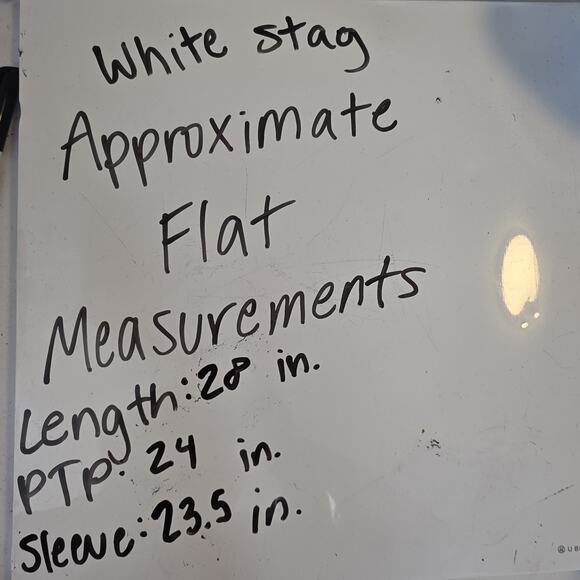 White stag
Approximate
Flat
Measurements
Length: 28 in.
PTP: 24 in.
Sleeve: 23.5 in.